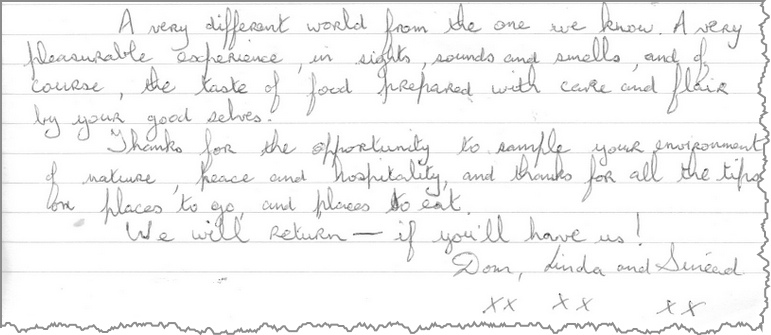 A very different world from the one we know. A very
pleasurable experience, in sights, sounds and smells, and of
course, the taste of food prepared with care and flair
by your good selves.
Thanks for the opportunity to sample your environment
of nature, peace and hospitality, and thanks for all the tips
on places to go, and places to eat.
We will return — if you'll have us!
Dom, Linda and Sinéad
xx xx xx